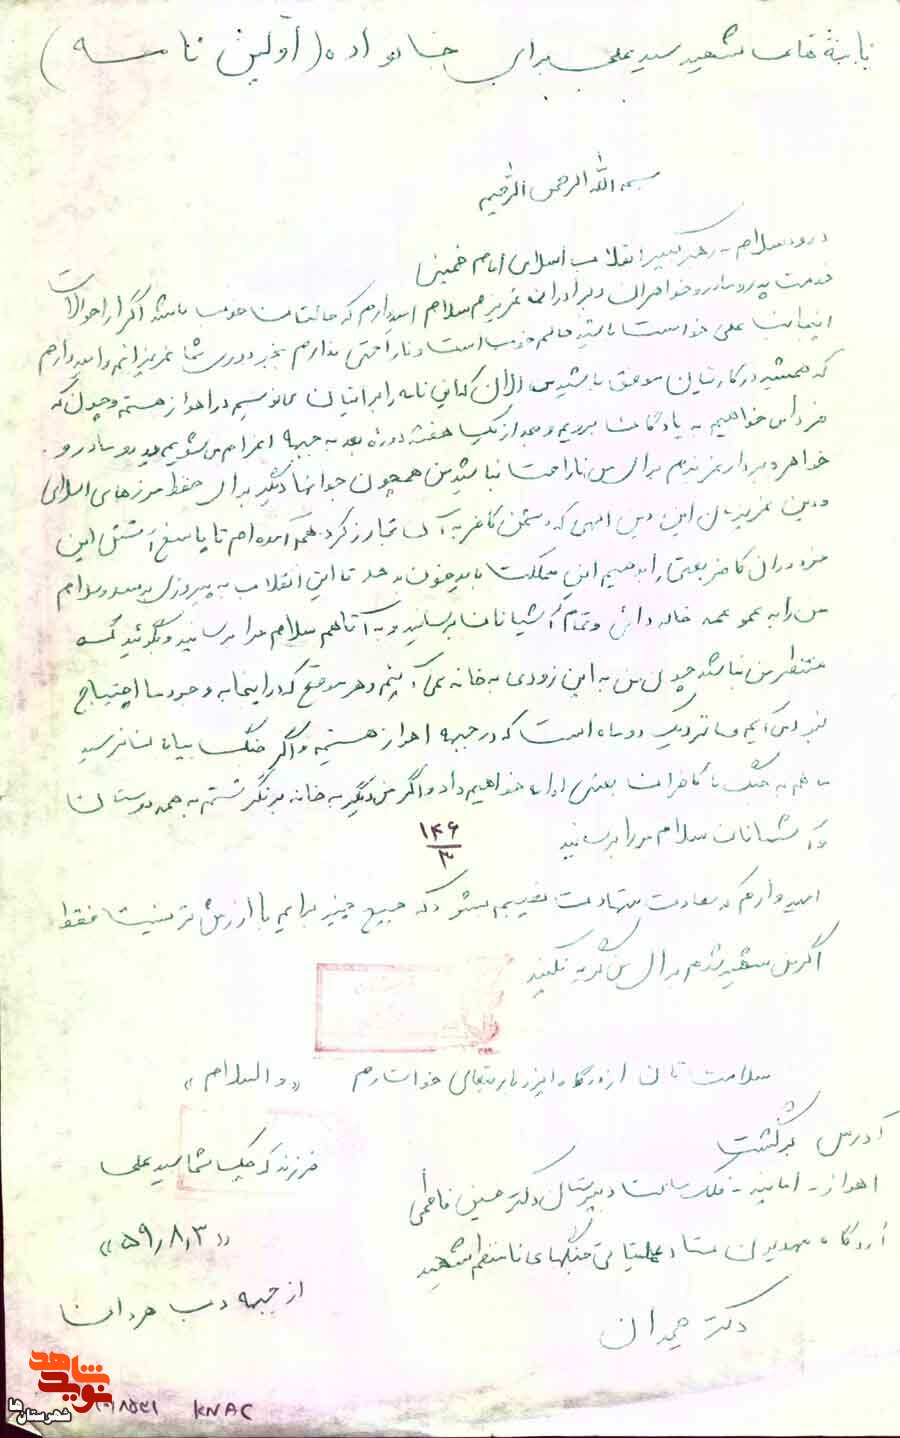 نامهٔ های شهید سید علی برای خانواده (اولین نامه)
بسم الله الرحمن الرحیم
درود و سلام به رهبر کبیر انقلاب اسلامی امام خمینی
خدمت پدر و مادر و خواهران و برادران عزیزم سلام امیدوارم که حالتان خوب باشد اگر از احوالات
اینجانب علی خواسته باشید حالم خوب است و ناراحتی ندارم بجز دوری شما عزیزانم و امیدوارم
که همیشه در کارتان موفق باشید من الان که این نامه را برایتان می‌نویسم در اهواز هستم و چون که
فردا می خواهیم به پادگان برویم و بعد از یک هفته دوره بعد به جبهه اعزام می شویم پدر و مادر و
خواهر و برادر عزیزم برای من ناراحت نباشید من همچون جوانهای دیگر برای حفظ مرزهای اسلامی
و دین عزیزمان این دین الهی که دشمن کافر به آن تجاوز کرده آمده ام تا پاسخ آتش این
مزدوران کافر بعثی را بدهیم این مملکت باید خون بدهد تا این انقلاب به پیروزی برسد و سلام
من را به عمو عمه خاله دائی و تمام آشنایان برسانید و به آقا هم سلام مرا برسانید و بگوئید که
منتظر من نباشد چون من به این زودی به خانه نمی آیم و هر موقع که در اینجا به وجود ما احتیاج
نبود می آیم و ما نزدیک دو ماه است که در جبهه اهواز هستیم و اگر جنگ به پایان نرسید
ما هم به جنگ با کافران بعثی ادامه خواهیم داد و اگر من دیگر به خانه برنگشتم به همه دوستان
و آشنایان سلام مرا برسانید
۱۴۶
۳
امیدوارم که سعادت شهادت نصیبم شود که هیچ چیز برایم با ارزش تر نیست فقط
اگر من شهید شدم برای من گریه نکنید
سلامت تان از درگاه ایزد باریتعالی خواستارم «والسلام»
آدرس برگشت
فرزند کوچک شما سید علی
اهواز - امانیه - فلکه ساعت دبیرستان دکتر حسین فاطمی
«۵۹٫۸٫۳»
اردوگاه مهدیون ستاد عملیاتی جنگهای نامنظم شهید
از جبهه دب حردان
دکتر چمران
شاهد
نوید
شهرستان‌ها
KNAC